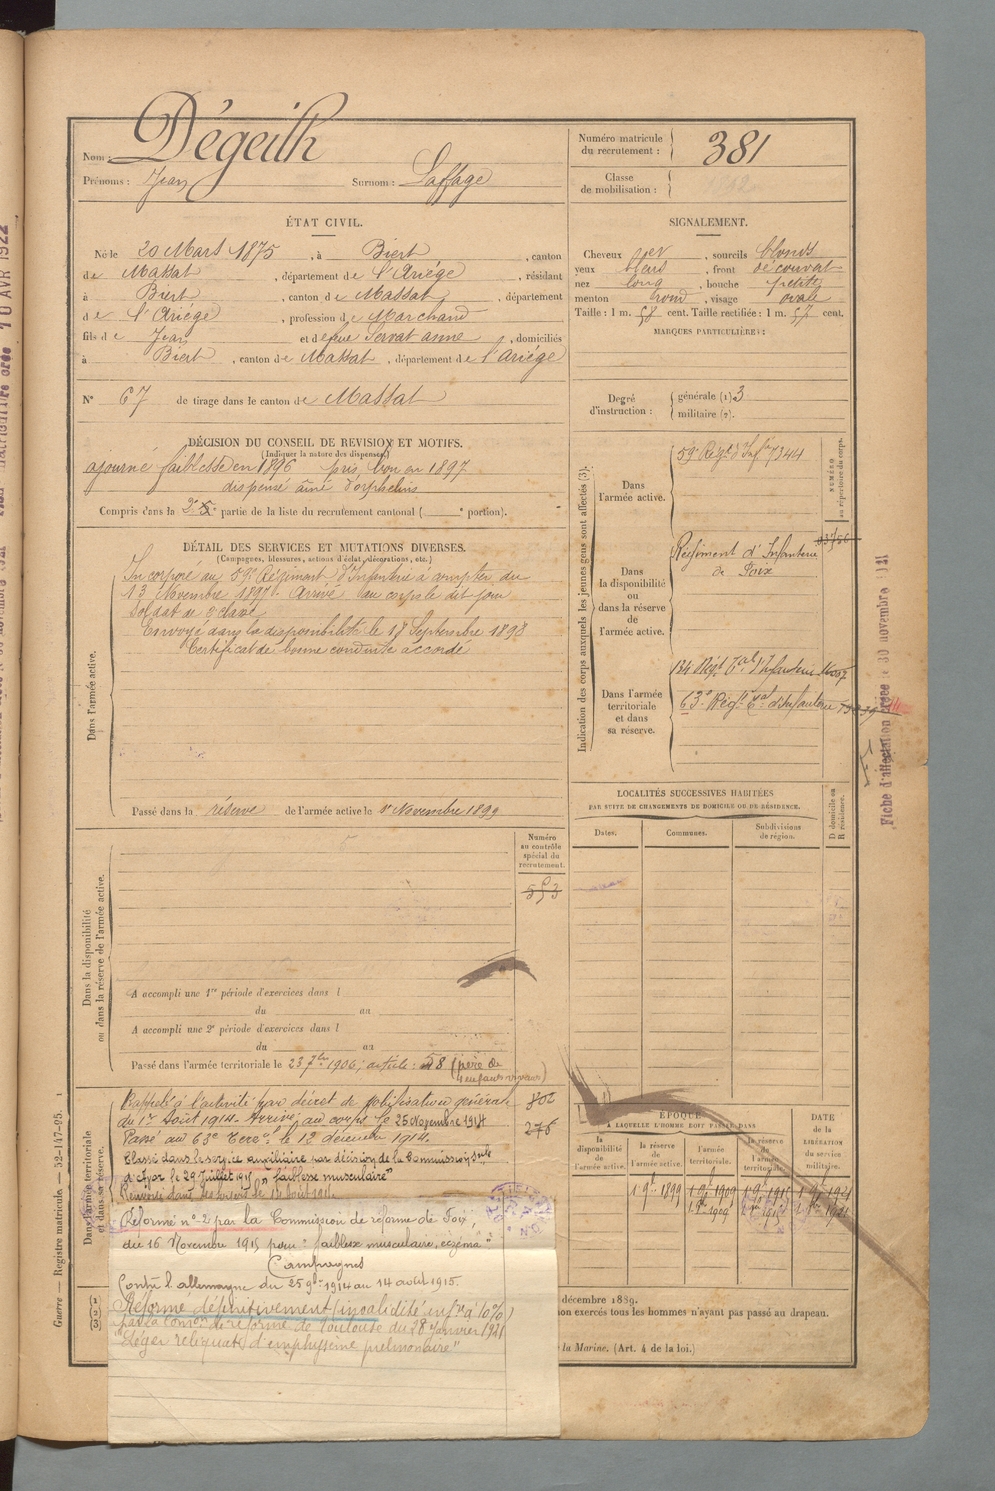 Nom : Dégeilh
Prénoms : Jean Surnom : Laffage
Numéro matricule du recrutement : 381
Classe de mobilisation :
ÉTAT CIVIL.
Né le 20 Mars 1875, à Biert, canton
de Massat, département de l'Ariége, résidant
à Biert, canton de Massat, département
de l'Ariége, profession de Marchand
fils de Jean et de feue Servat anne, domiciliés
à Biert, canton de Massat, département de l'Ariége
N° 67 de tirage dans le canton de Massat
SIGNALEMENT.
Cheveux et, sourcils blonds
yeux bleus, front découvert
nez long, bouche petite
menton rond, visage ovale
Taille : 1 m. 58 cent. Taille rectifiée : 1 m. 57 cent.
MARQUES PARTICULIÈRES :
Degré d'instruction : générale (1) 3
militaire (2).
DÉCISION DU CONSEIL DE REVISION ET MOTIFS.
(Indiquer la nature des dispenses.)
ajourné faiblesse en 1896 pris bon en 1897
dispensé aîné d'orphelins
Compris dans la 2e partie de la liste du recrutement cantonal ( ° portion).
DÉTAIL DES SERVICES ET MUTATIONS DIVERSES.
(Campagnes, blessures, actions d'éclat, décorations, etc.)
Dans l'armée active.
Incorporé au 59e Régiment d'Infanterie à compter du
13 Novembre 1897. Arrivé au corps le dit jour
Soldat de 2e classe
Envoyé dans la disponibilité le 17 Septembre 1898
Certificat de bonne conduite accordé
Passé dans la réserve de l'armée active le 1er Novembre 1899
Indication des corps auxquels les jeunes gens sont affectés (3).
NUMÉRO au répertoire du corps.
Dans l'armée active.
59e Régt d'Infie 7344
Dans la disponibilité ou dans la réserve de l'armée active.
Régiment d'Infanterie
de Foix
Dans l'armée territoriale et dans sa réserve.
134 Régt Tal d'Infanterie
63e Régt Tal d'Infanterie
Fiche d'affectation créée le 30 novembre 1921
10 AVR 1922
LOCALITÉS SUCCESSIVES HABITÉES
PAR SUITE DE CHANGEMENTS DE DOMICILE OU DE RÉSIDENCE.
Dates. Communes. Subdivisions de région. D domicile ou R résidence.
Dans la disponibilité ou dans la réserve de l'armée active.
Numéro au contrôle spécial du recrutement.
553
A accompli une 1re période d'exercices dans l
du au
A accompli une 2e période d'exercices dans l
du au
Passé dans l'armée territoriale le 23 7bre 1906, article : 58 (père de
4 enfants vivants)
Dans l'armée territoriale et dans sa réserve.
Rappelé à l'activité par décret de mobilisation générale
du 1er Août 1914. Arrivé au corps le 25 Novembre 1914
276
Passé au 63e Terr. le 12 décembre 1914.
Classé dans le service auxiliaire par décision de la Commission sple
le 29 Juillet 1915 pr "faiblesse musculaire"
Réformé n° 2 par la Commission de réforme de Foix,
du 16 Novembre 1915 pour "faiblesse musculaire, eczéma"
Campagnes
Contre l'allemagne du 25 9bre 1914 au 14 août 1915.
Réformé définitivement (invalidité infre à 10%)
par la Comon de réforme de Toulouse du 28 Janvier 1921
"Léger reliquat d'emphysème pulmonaire"
ÉPOQUE
À LAQUELLE L'HOMME DOIT PASSER DANS
la disponibilité de l'armée active. la réserve de l'armée active. l'armée territoriale. la réserve de l'armée territoriale.
DATE DE LA LIBÉRATION du service militaire.
1 9bre 1899 1 9bre 1909 1 9bre 1915 1 9bre 1921
décembre 1889.
non exercés tous les hommes n'ayant pas passé au drapeau.
la Marine. (Art. 4 de la loi.)
Guerre — Registre matricule. — 52-147-95.